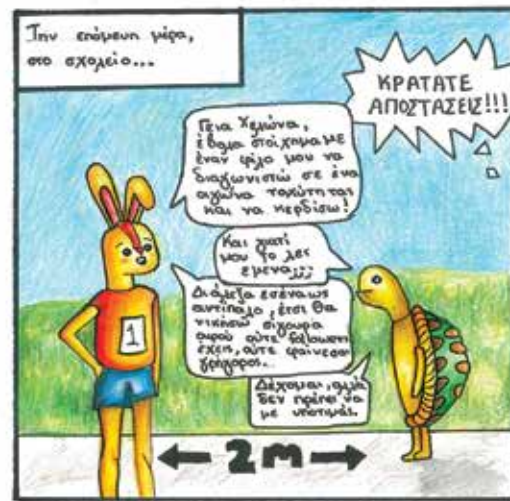 Την επόμενη μέρα,
στο σχολείο...
ΚΡΑΤΑΤΕ
ΑΠΟΣΤΑΣΕΙΣ!!!
Γεια Χελώνα,
έβαλα στοίχημα με
έναν φίλο μου να
διαγωνιστώ σε ένα
αγώνα ταχύτητας
και να κερδίσω!
Και γιατί
μου το λες
εμένα;;;
Διάλεξα εσένα ως
αντίπαλο, έτσι θα
νικήσω σίγουρα
αφού ούτε
έχεις, ούτε φαίνεσαι
γρήγορος...
Δέχομαι, αλλά
δεν πρέπει να
με υποτιμάς.
1
2m